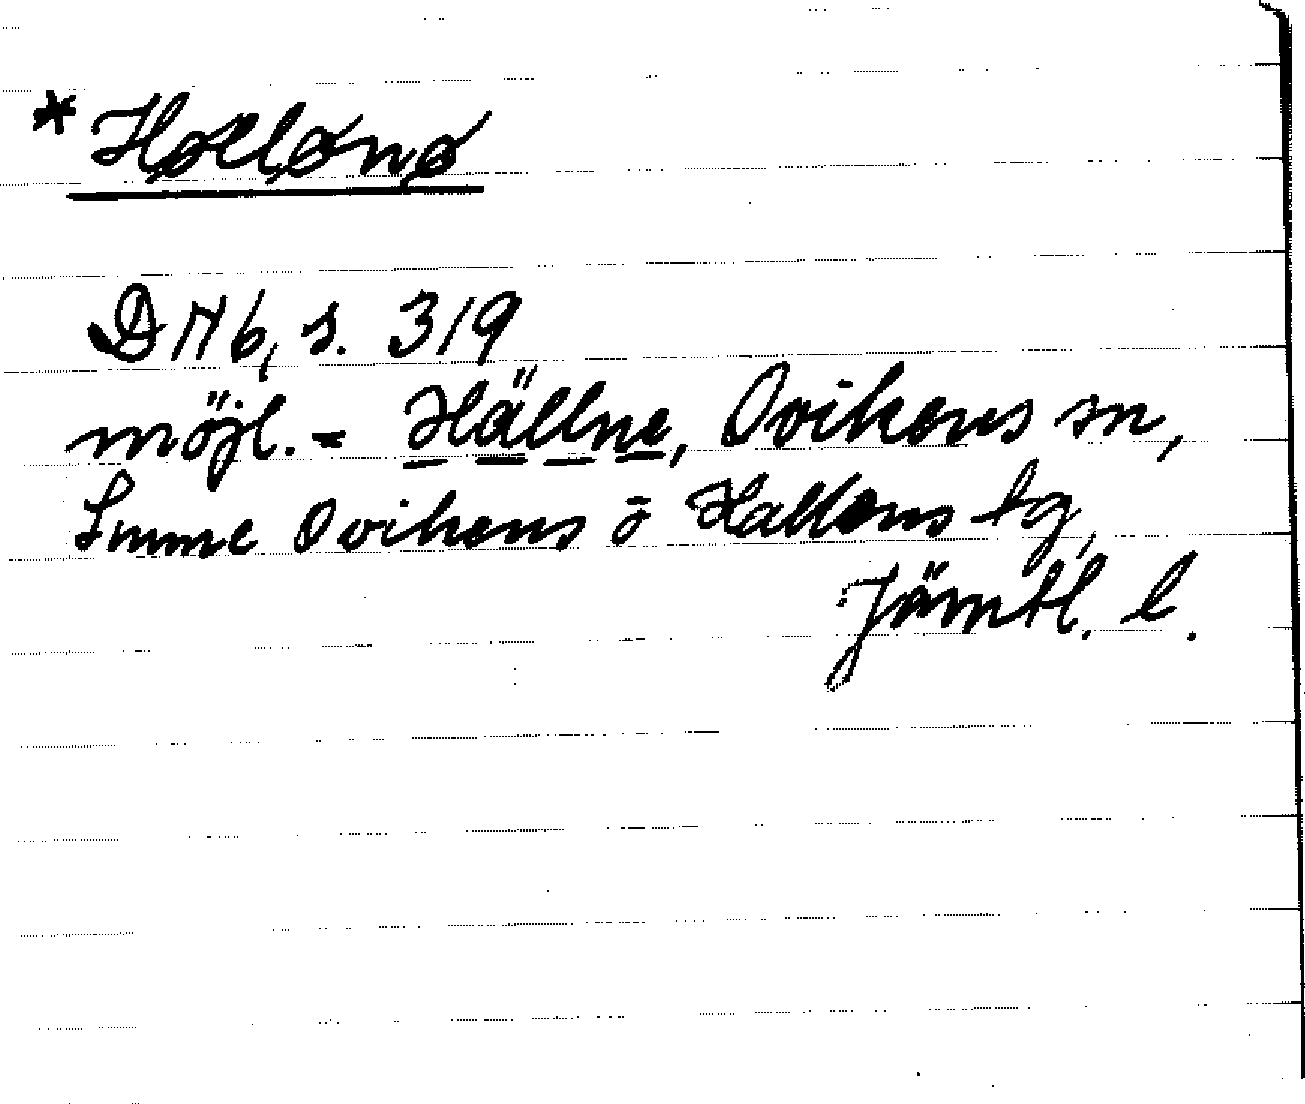 * Høllønø
DN 6, s. 319
möjl. = Hällne, Ovikens sn,
Ovikens o Hallens tg,
Jämtl. l.